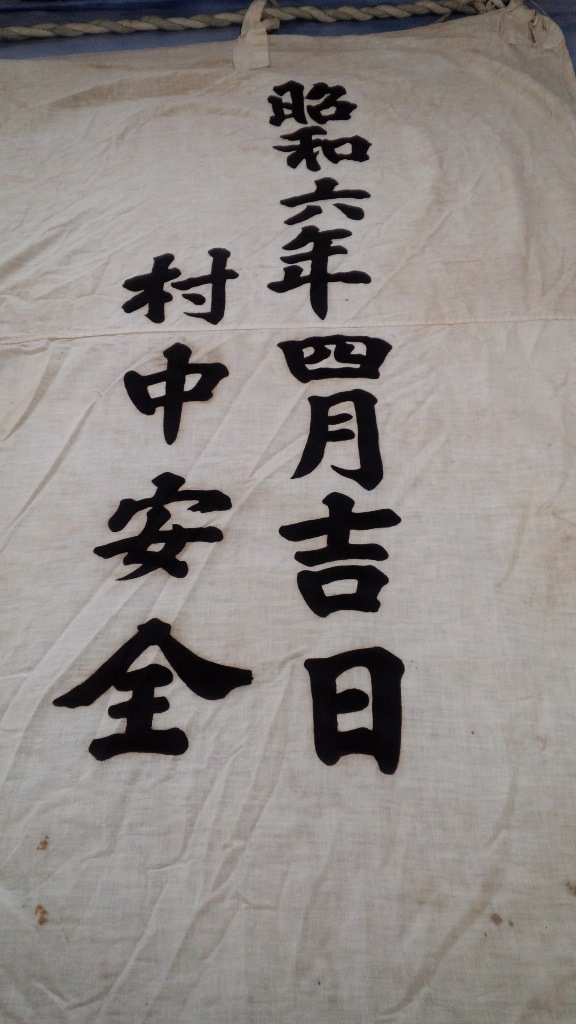 昭和六年四月吉日
村中安全